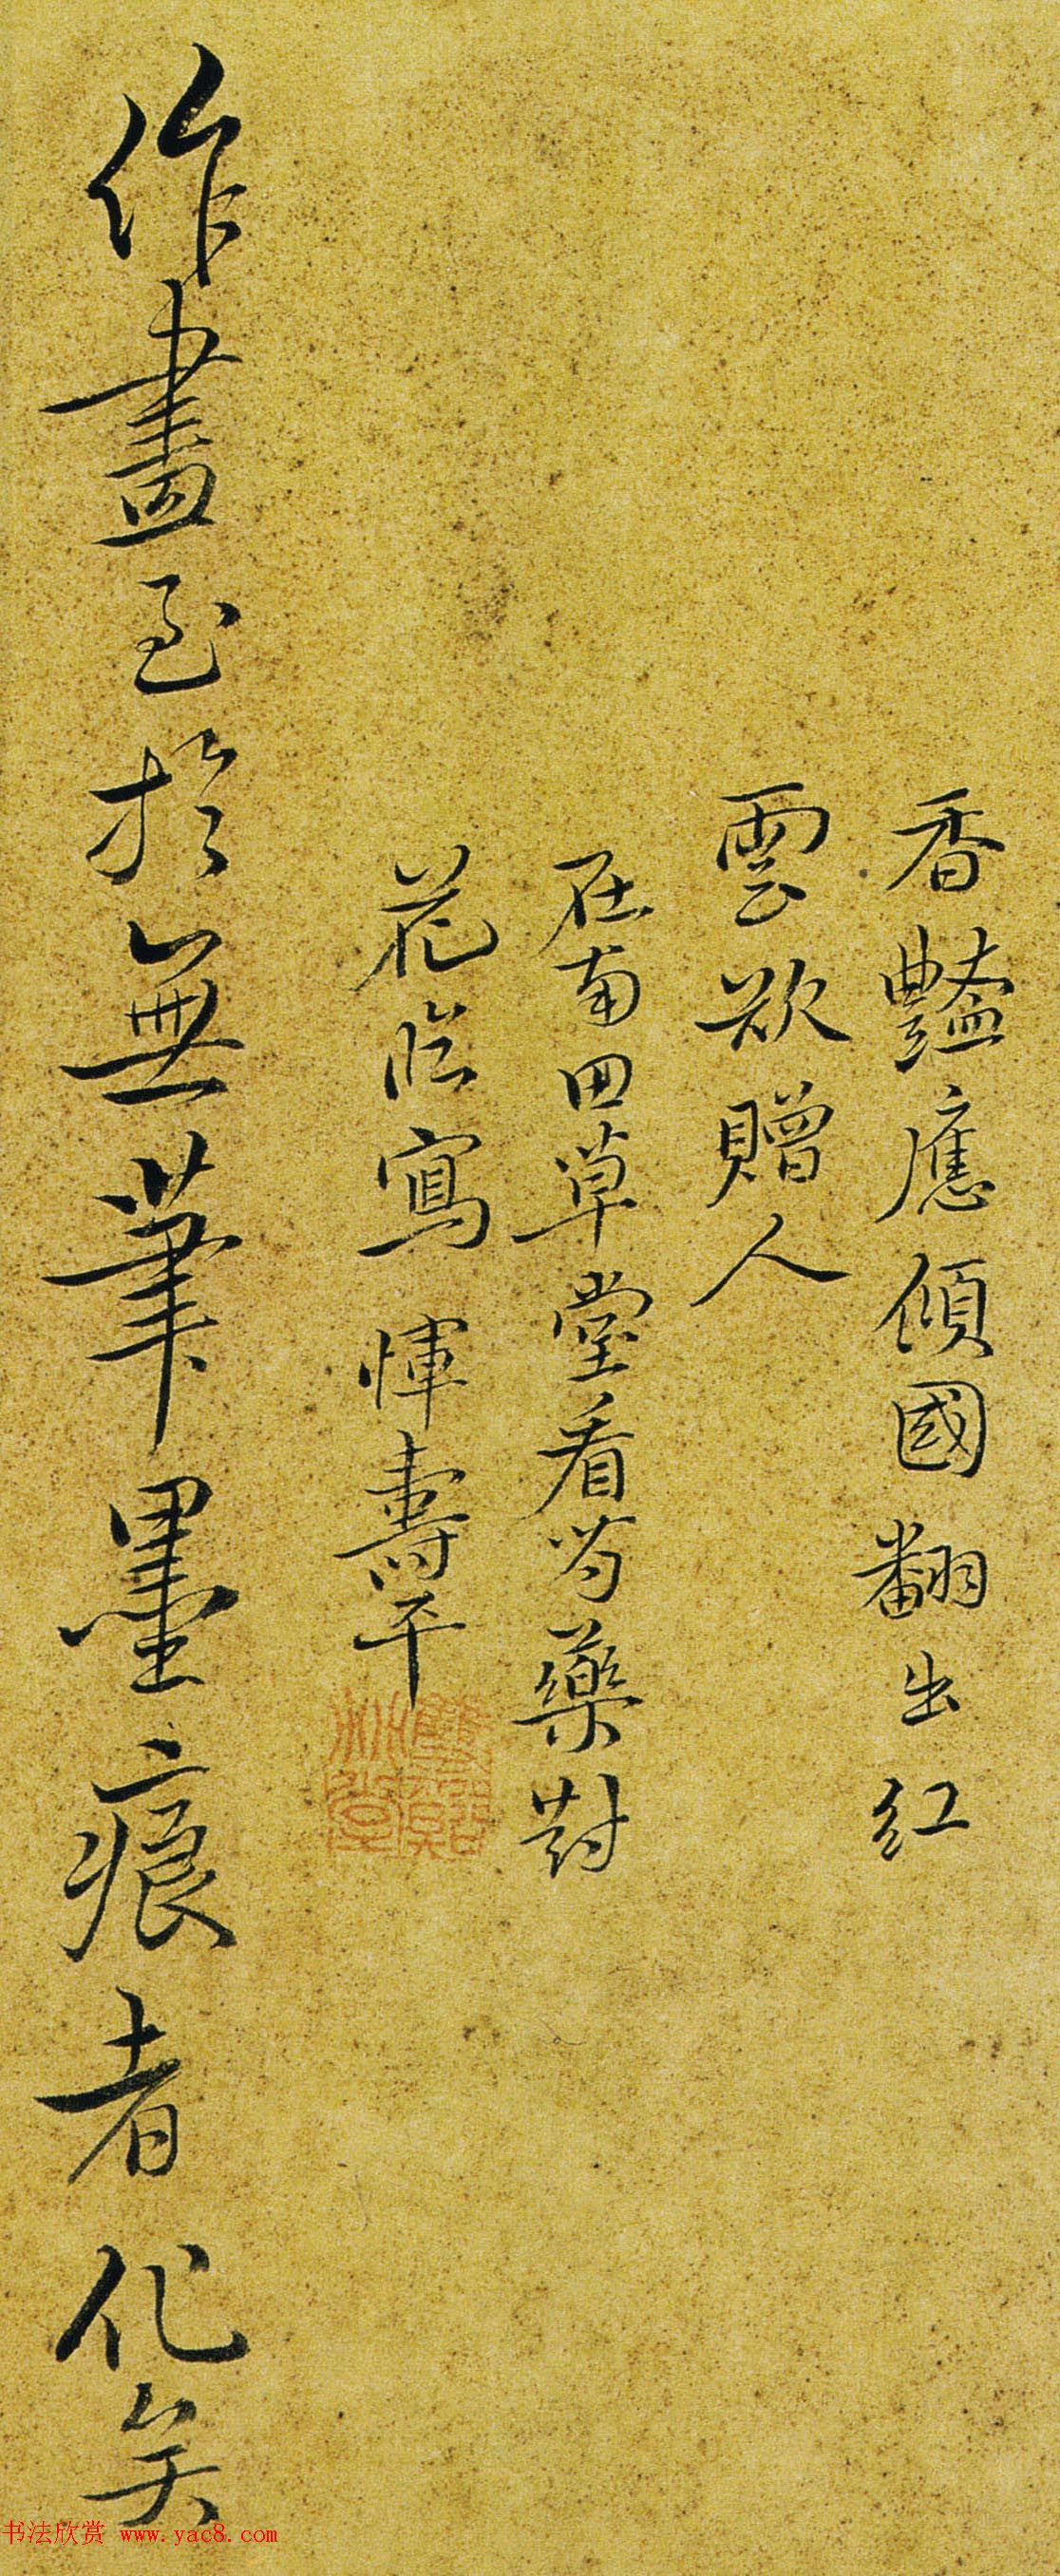 香豔應傾國翻出紅
雲欲贈人
在南田草堂看芍藥對
花臨寫 惲壽平
作畫至於無筆墨痕者化矣
书法欣赏 www.yac8.com